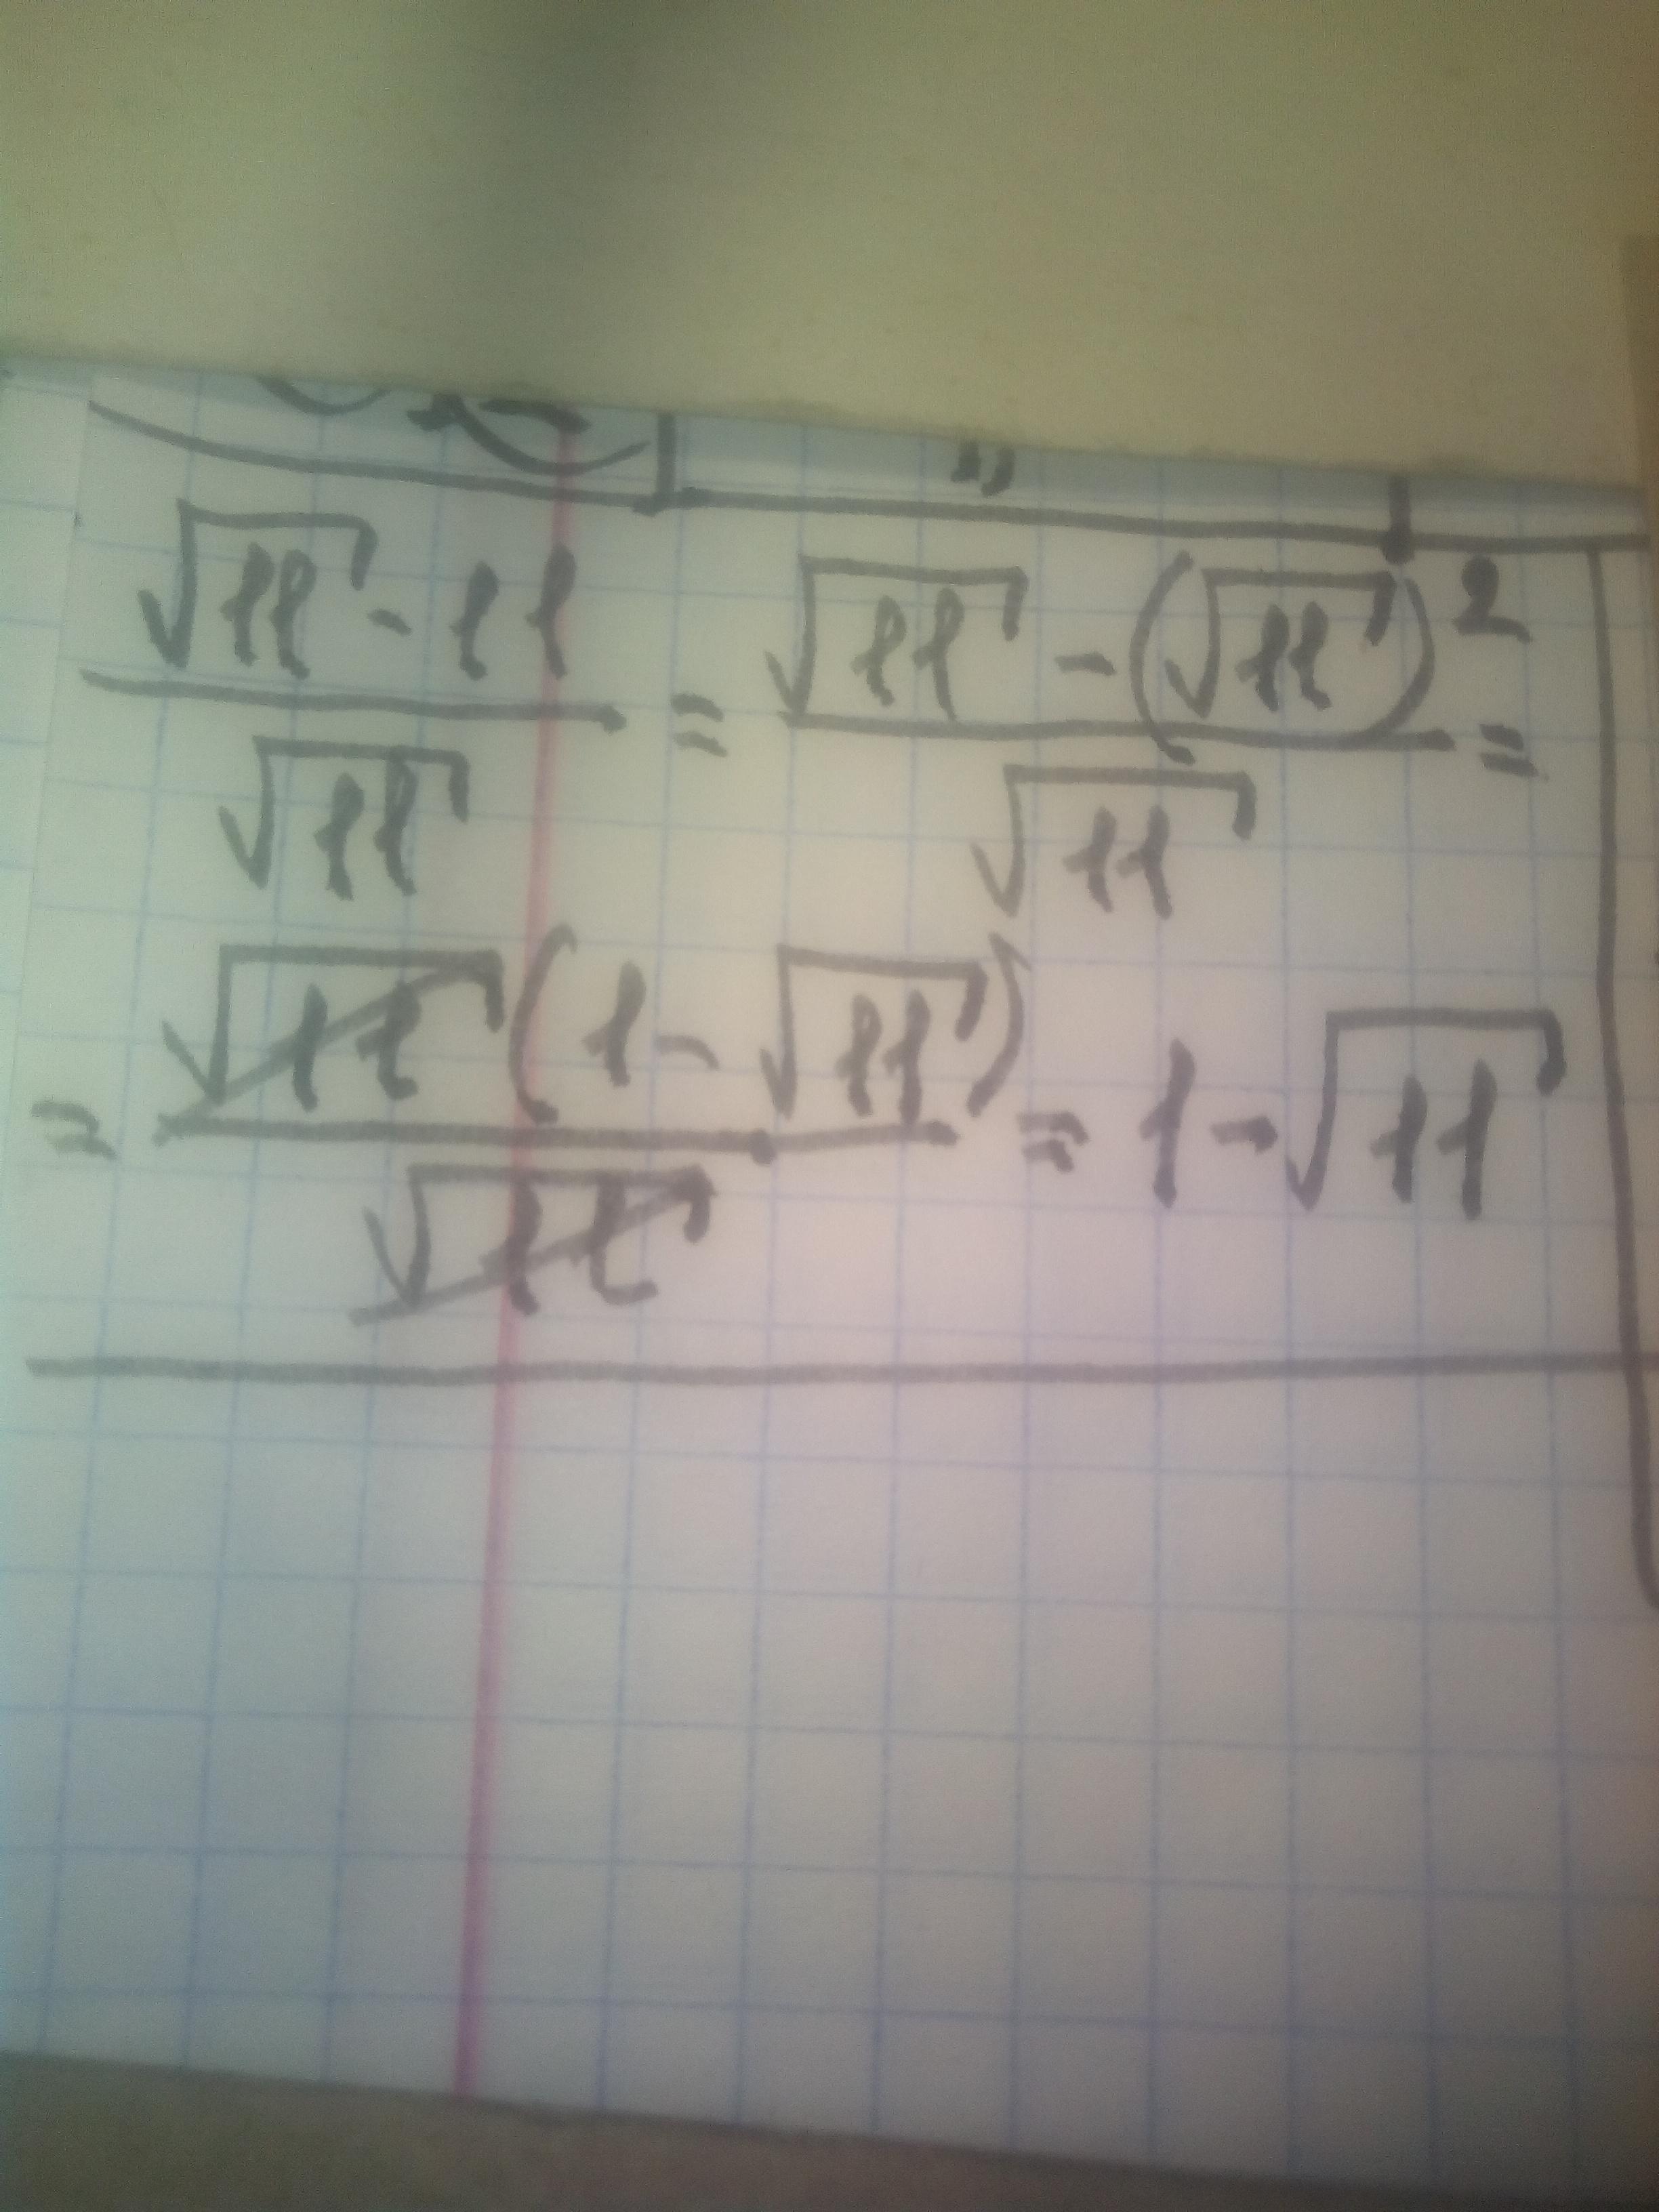 (√11 - 11)/√11 = (√11 - (√11)²)/√11 =
= √11(1 - √11)/√11 = 1 - √11